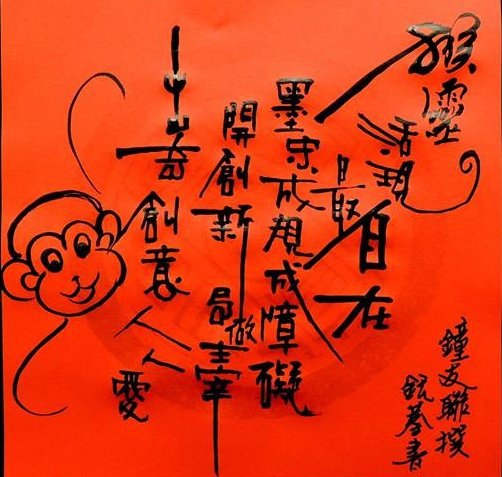 猴靈
活現
最自在
墨守成規成障礙
開創新局做主宰
奇創意人人愛
鐘友聯撰
書